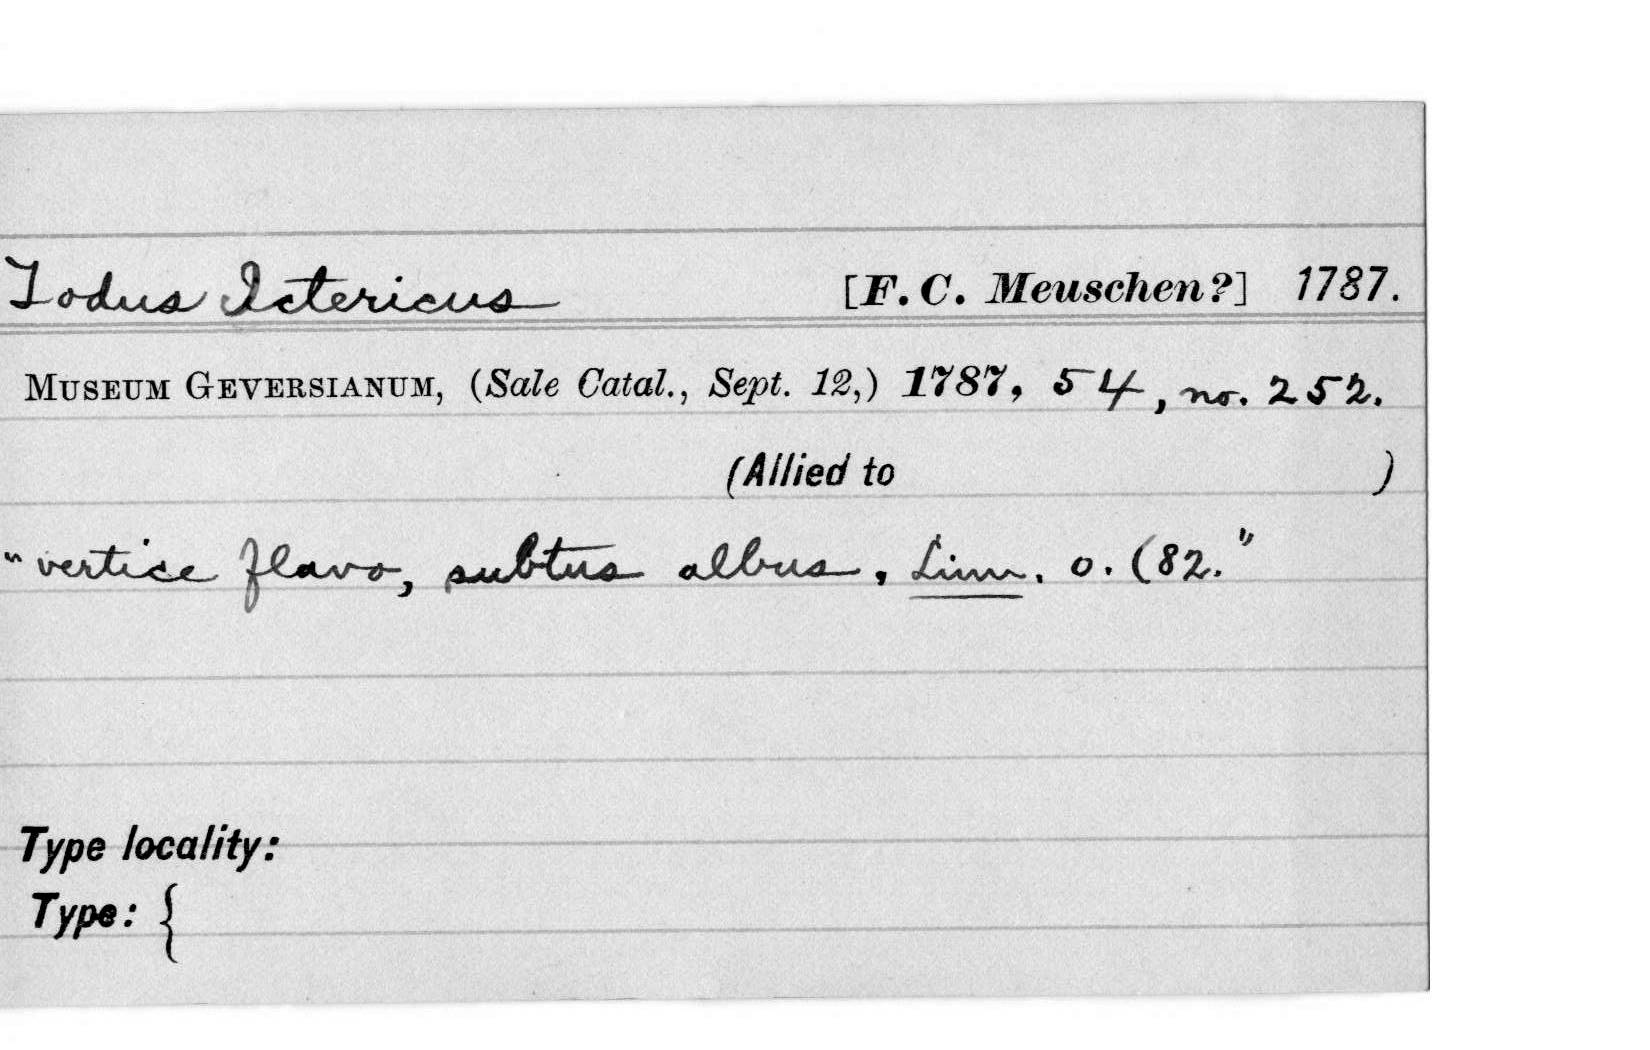 Todus Ictericus [F. C. Meuschen?] 1787.
MUSEUM GEVERSIANUM, (Sale Catal., Sept. 12,) 1787, 54, no. 252.
(Allied to )
"vertice flavo, subtus albus, Linn. o. (82."
Type locality:
Type: {